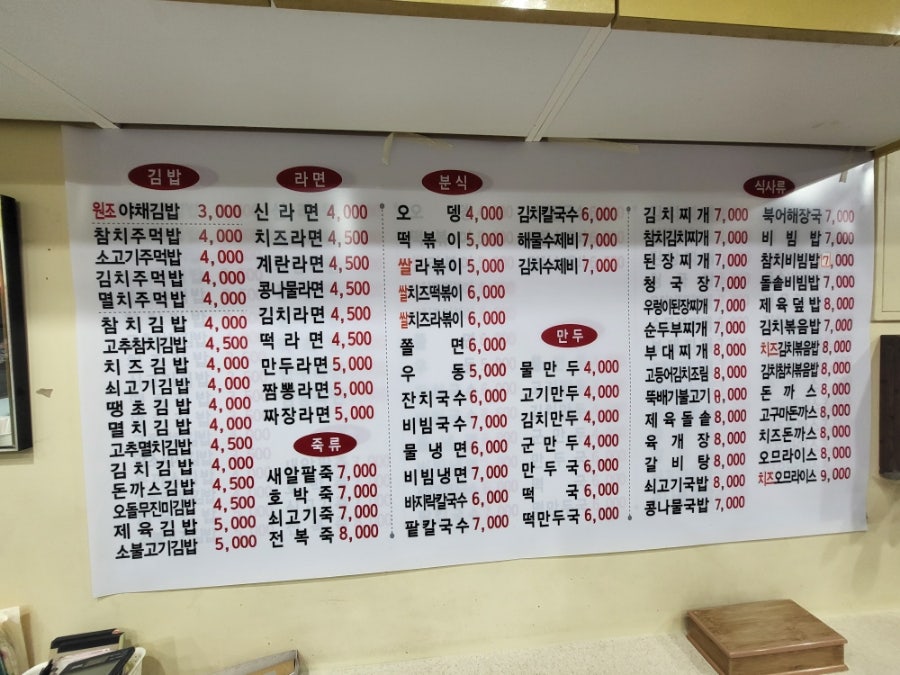 김밥
원조 야채김밥 3,000
참치주먹밥 4,000
소고기주먹밥 4,000
김치주먹밥 4,000
멸치주먹밥 4,000
참치김밥 4,000
고추참치김밥 4,500
치즈김밥 4,000
쇠고기김밥 4,500
땡초김밥 4,000
멸치김밥 4,000
고추멸치김밥 4,500
김치김밥 4,000
돈까스김밥 4,500
오돌무진미김밥 4,500
제육김밥 5,000
소불고기김밥 5,000
라면
신라면 4,000
치즈라면 4,500
계란라면 4,500
콩나물라면 4,500
김치라면 4,500
떡라면 4,500
만두라면 5,000
짬뽕라면 5,000
짜장라면 5,000
죽류
새알팥죽 7,000
호박죽 7,000
쇠고기죽 7,000
전복죽 8,000
분식
오뎅 4,000
떡볶이 5,000
쌀라볶이 5,000
쌀치즈떡볶이 6,000
쌀치즈라볶이 6,000
쫄면 6,000
우동 5,000
잔치국수 6,000
비빔국수 7,000
물냉면 6,000
비빔냉면 7,000
바지락칼국수 6,000
팥칼국수 7,000
김치칼국수 6,000
해물수제비 7,000
김치수제비 7,000
만두
물만두 4,000
고기만두 4,000
김치만두 4,000
군만두 4,000
만두국 6,000
떡국 6,000
떡만두국 6,000
식사류
김치찌개 7,000
참치김치찌개 7,000
된장찌개 7,000
청국장 7,000
우렁이된장찌개 7,000
순두부찌개 7,000
부대찌개 8,000
고등어김치조림 8,000
뚝배기불고기 8,000
제육돌솥 8,000
육개장 8,000
갈비탕 8,000
쇠고기국밥 8,000
콩나물국밥 7,000
북어해장국 7,000
비빔밥 7,000
참치비빔밥 7,000
돌솥비빔밥 7,000
제육덮밥 8,000
김치볶음밥 7,000
치즈김치볶음밥 8,000
김치참치볶음밥 8,000
돈까스 8,000
고구마돈까스 8,000
치즈돈까스 8,000
오므라이스 8,000
치즈오므라이스 9,000